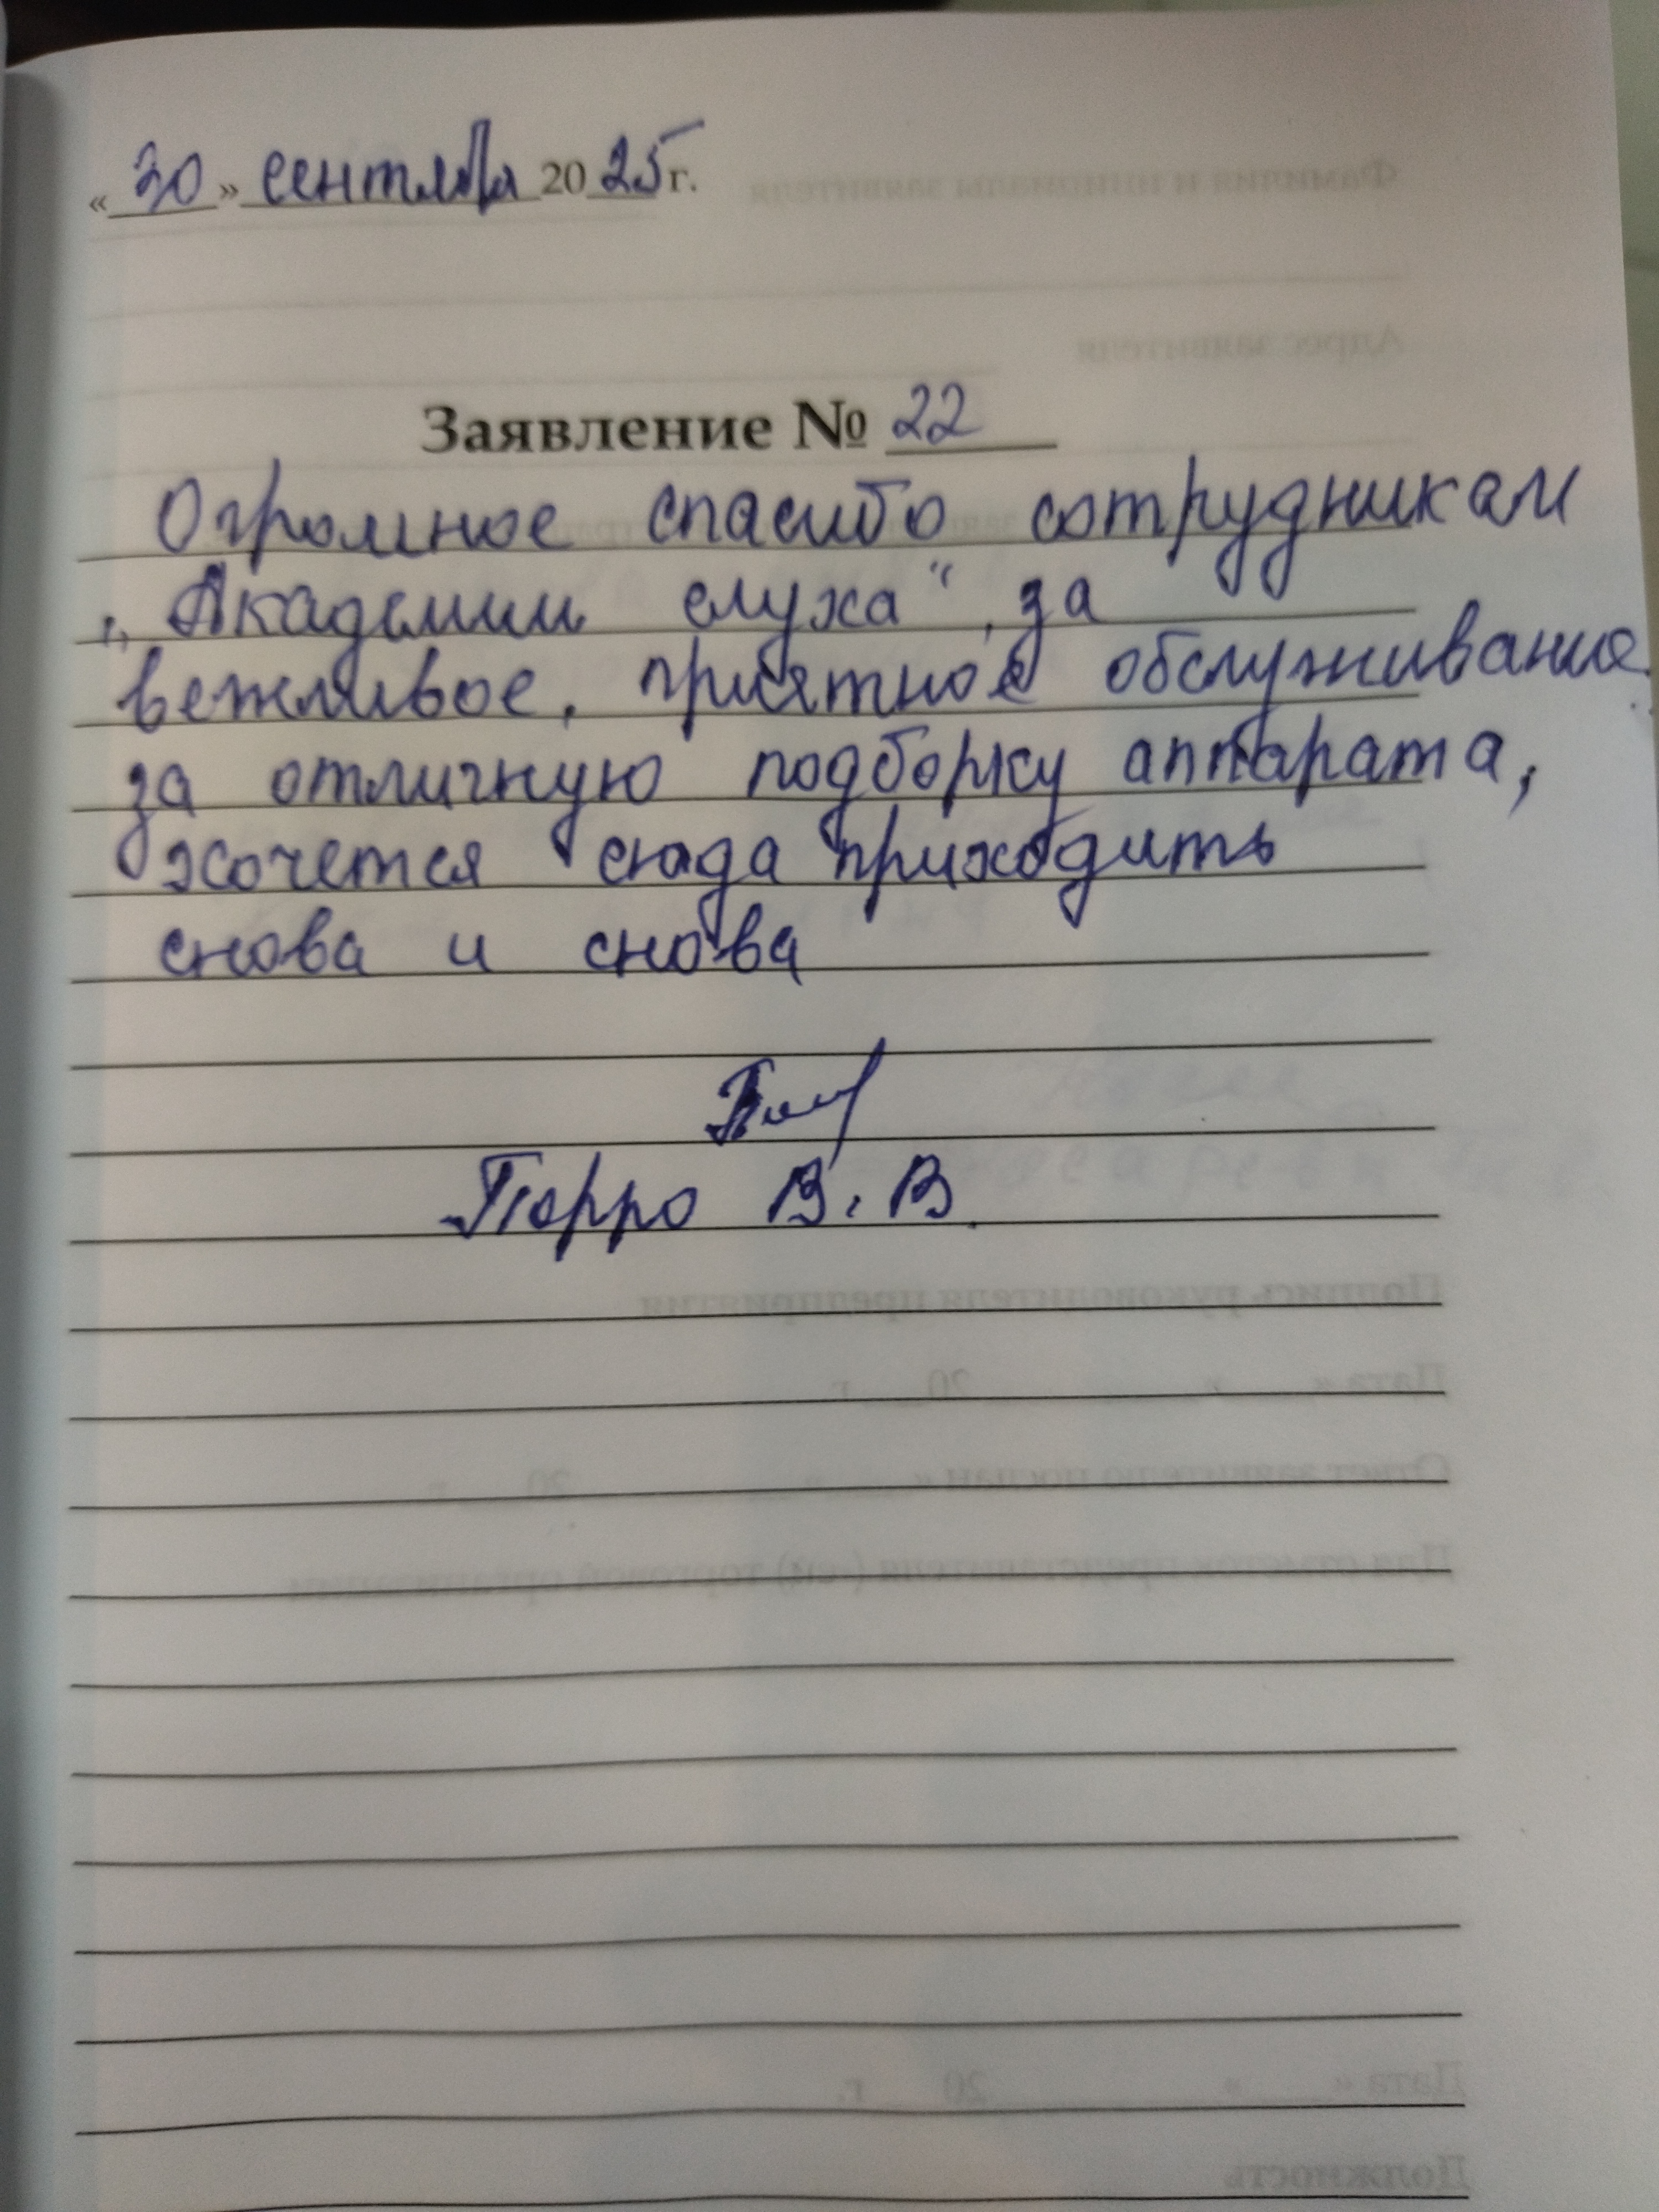 «30» сентября 2025 г.
Заявление № 22
Огромное спасибо сотрудникам
„Академии слуха“, за
вежливое, приятное обслуживание
за отличную подборку аппарата,
хочется сюда приходить
снова и снова
Порро В. В.